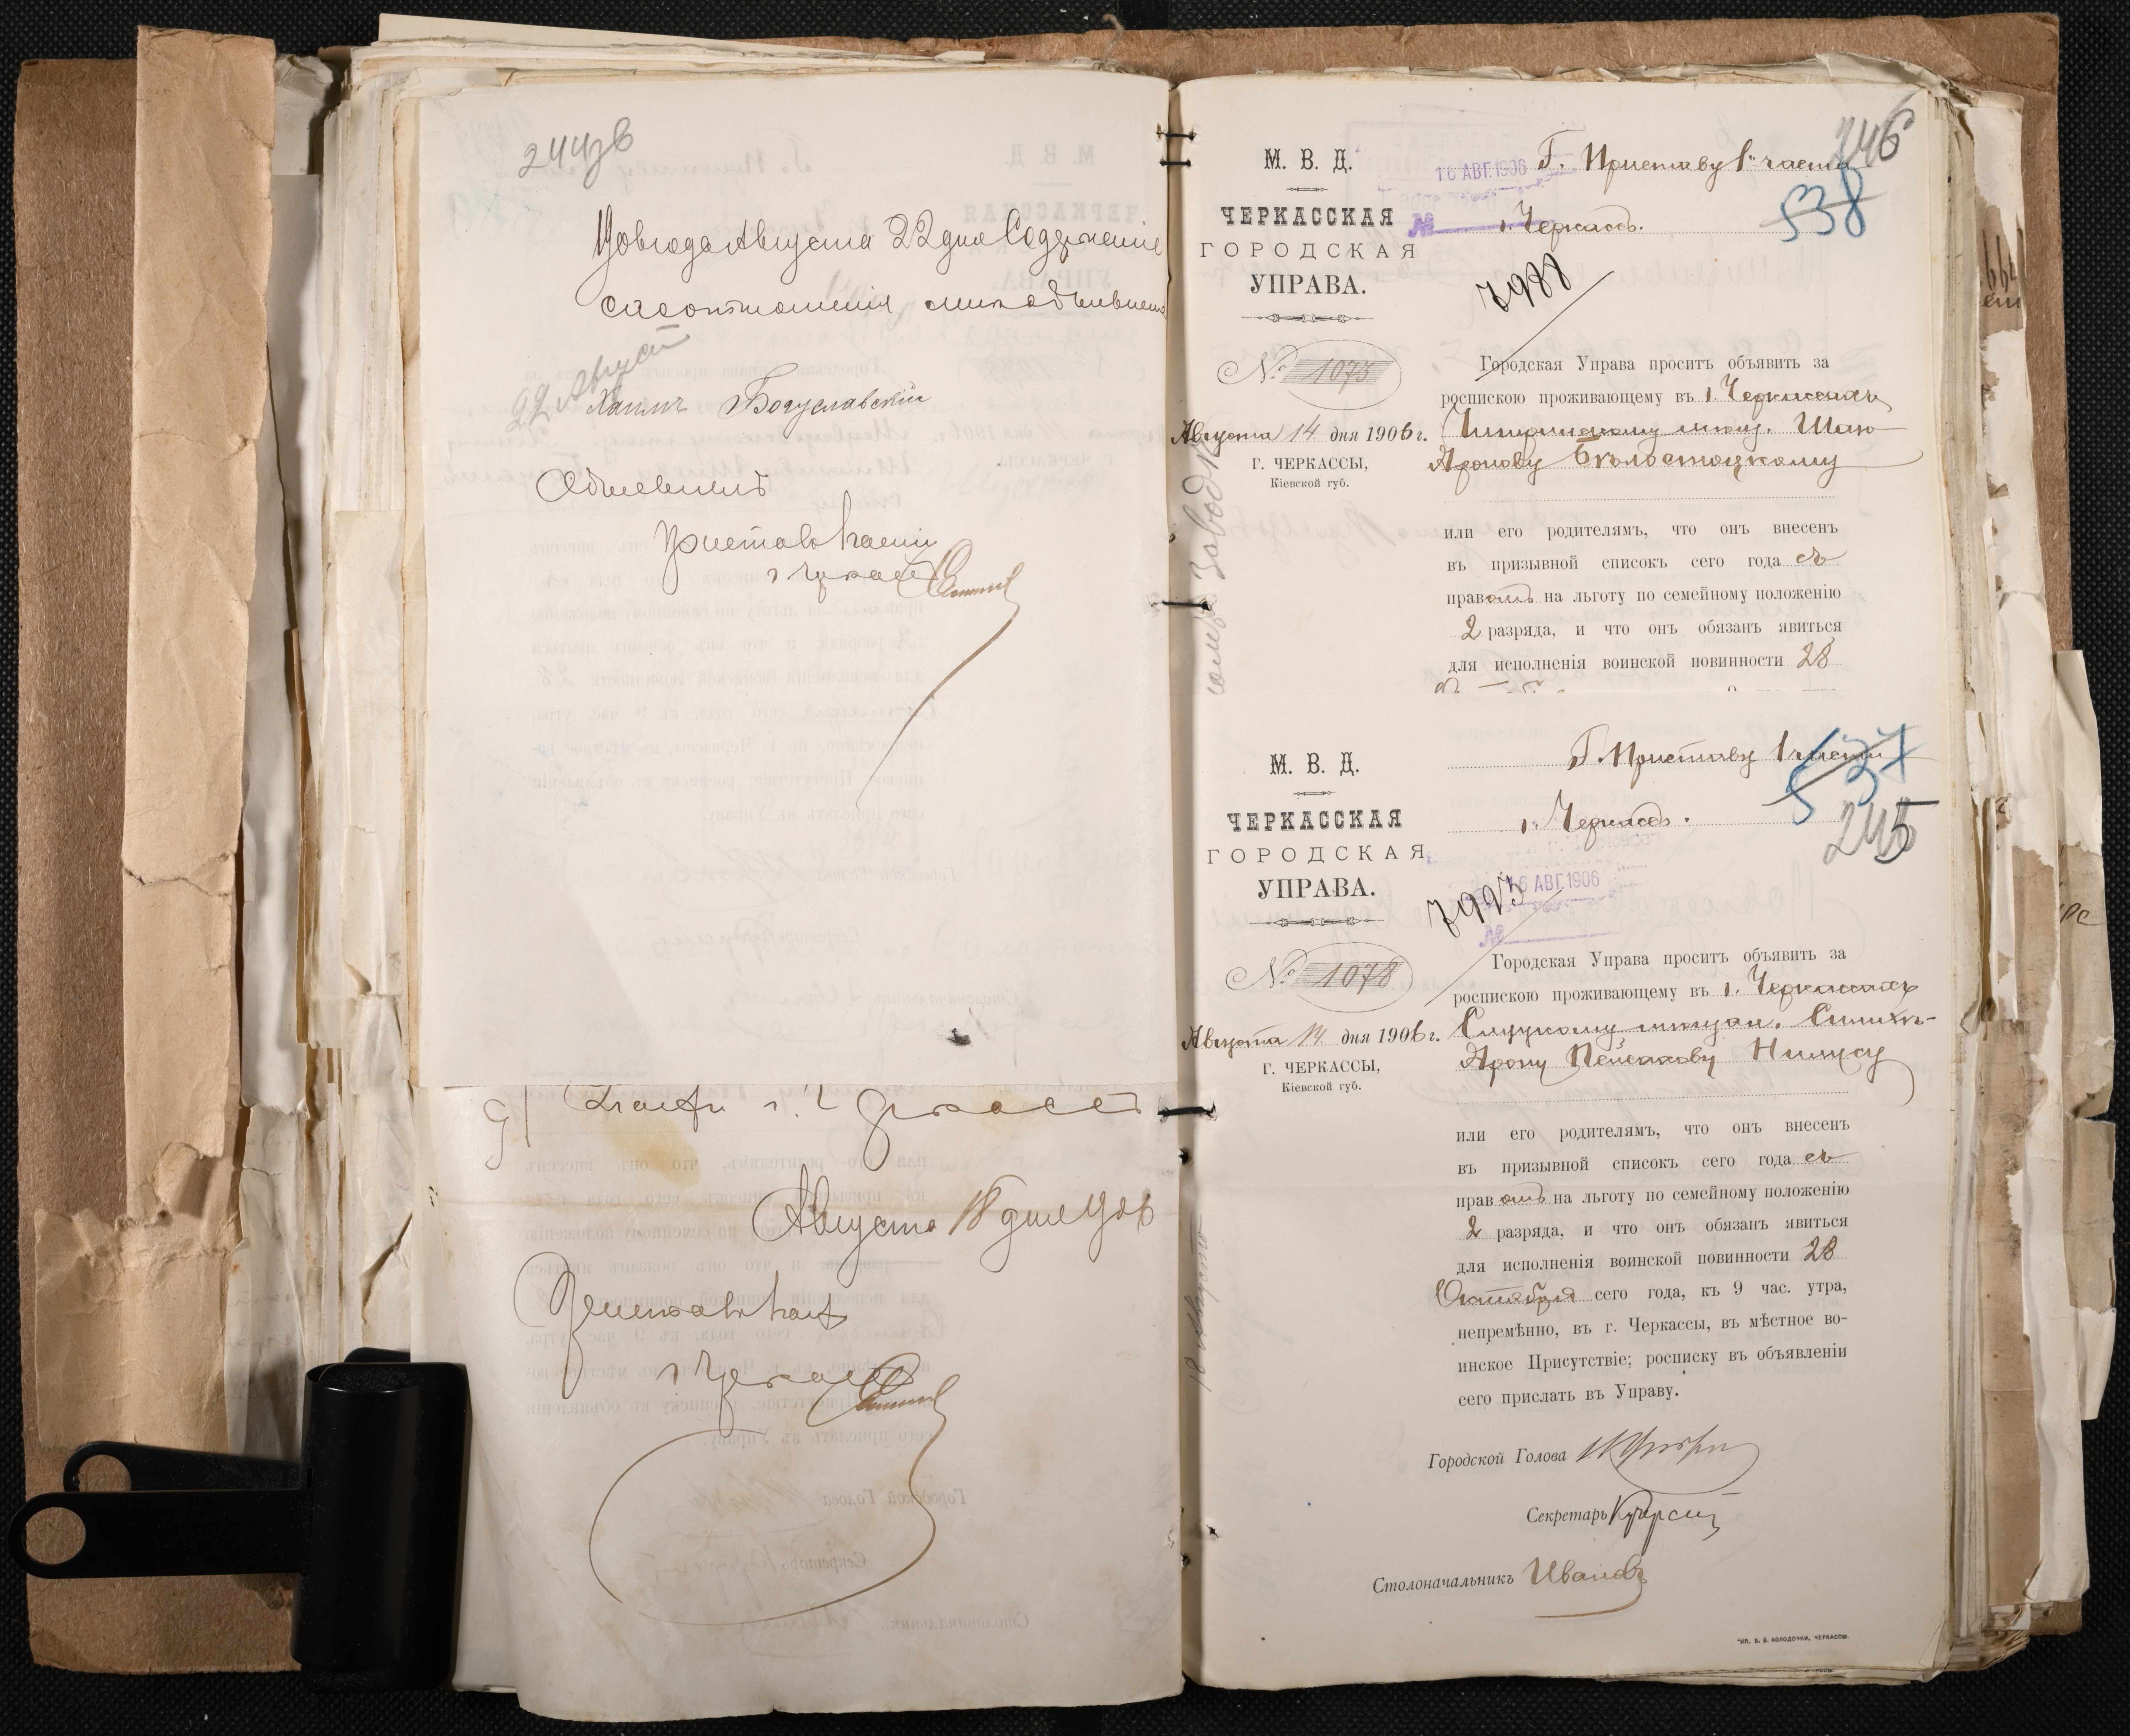 244 об
1906 года Августа 22 дня Содержаніе
сего отношенія мнѣ объявлено
22 Августа
Хаимъ Богуславскій
Объявилъ
Приставъ 1 части
г. Черкассъ
1 части г. Черкассъ
Августа 18 дня 1906
Приставъ 1 части
г. Черкассъ
246
М. В. Д.
ЧЕРКАССКАЯ
ГОРОДСКАЯ
УПРАВА.
16 АВГ. 1906
№
Г. Приставу 1й части
г. Черкассъ.
538
7988
№ 1073
Августа 14 дня 1906 г.
Г. ЧЕРКАССЫ,
Кіевской губ.
Городская Управа проситъ объявить за
роспискою проживающему въ г. Черкассахъ
Чигиринскому мѣщ. Шаю
Аронову Бѣлостоцкому
или его родителямъ, что онъ внесенъ
въ призывной списокъ сего года съ
правомъ на льготу по семейному положенію
2 разряда, и что онъ обязанъ явиться
для исполненія воинской повинности 28
М. В. Д.
ЧЕРКАССКАЯ
ГОРОДСКАЯ
УПРАВА.
Г. Приставу 1 части
г. Черкассъ.
537
245
16 АВГ. 1906
№
7993
№ 1078
Августа 14 дня 1906 г.
Г. ЧЕРКАССЫ,
Кіевской губ.
Городская Управа проситъ объявить за
роспискою проживающему въ г. Черкассахъ
Слуцкому мѣщан.
Арону Пейсахову Нимцу
или его родителямъ, что онъ внесенъ
въ призывной списокъ сего года съ
правомъ на льготу по семейному положенію
2 разряда, и что онъ обязанъ явиться
для исполненія воинской повинности 28
Октября сего года, къ 9 час. утра,
непремѣнно, въ г. Черкассы, въ мѣстное во-
инское Присутствіе; росписку въ объявленіи
сего прислать въ Управу.
Городской Голова
Секретарь
Столоначальникъ Ивановъ
18 Августа
ТИП. В. В. КОЛОДОЧКИ, ЧЕРКАССЫ.